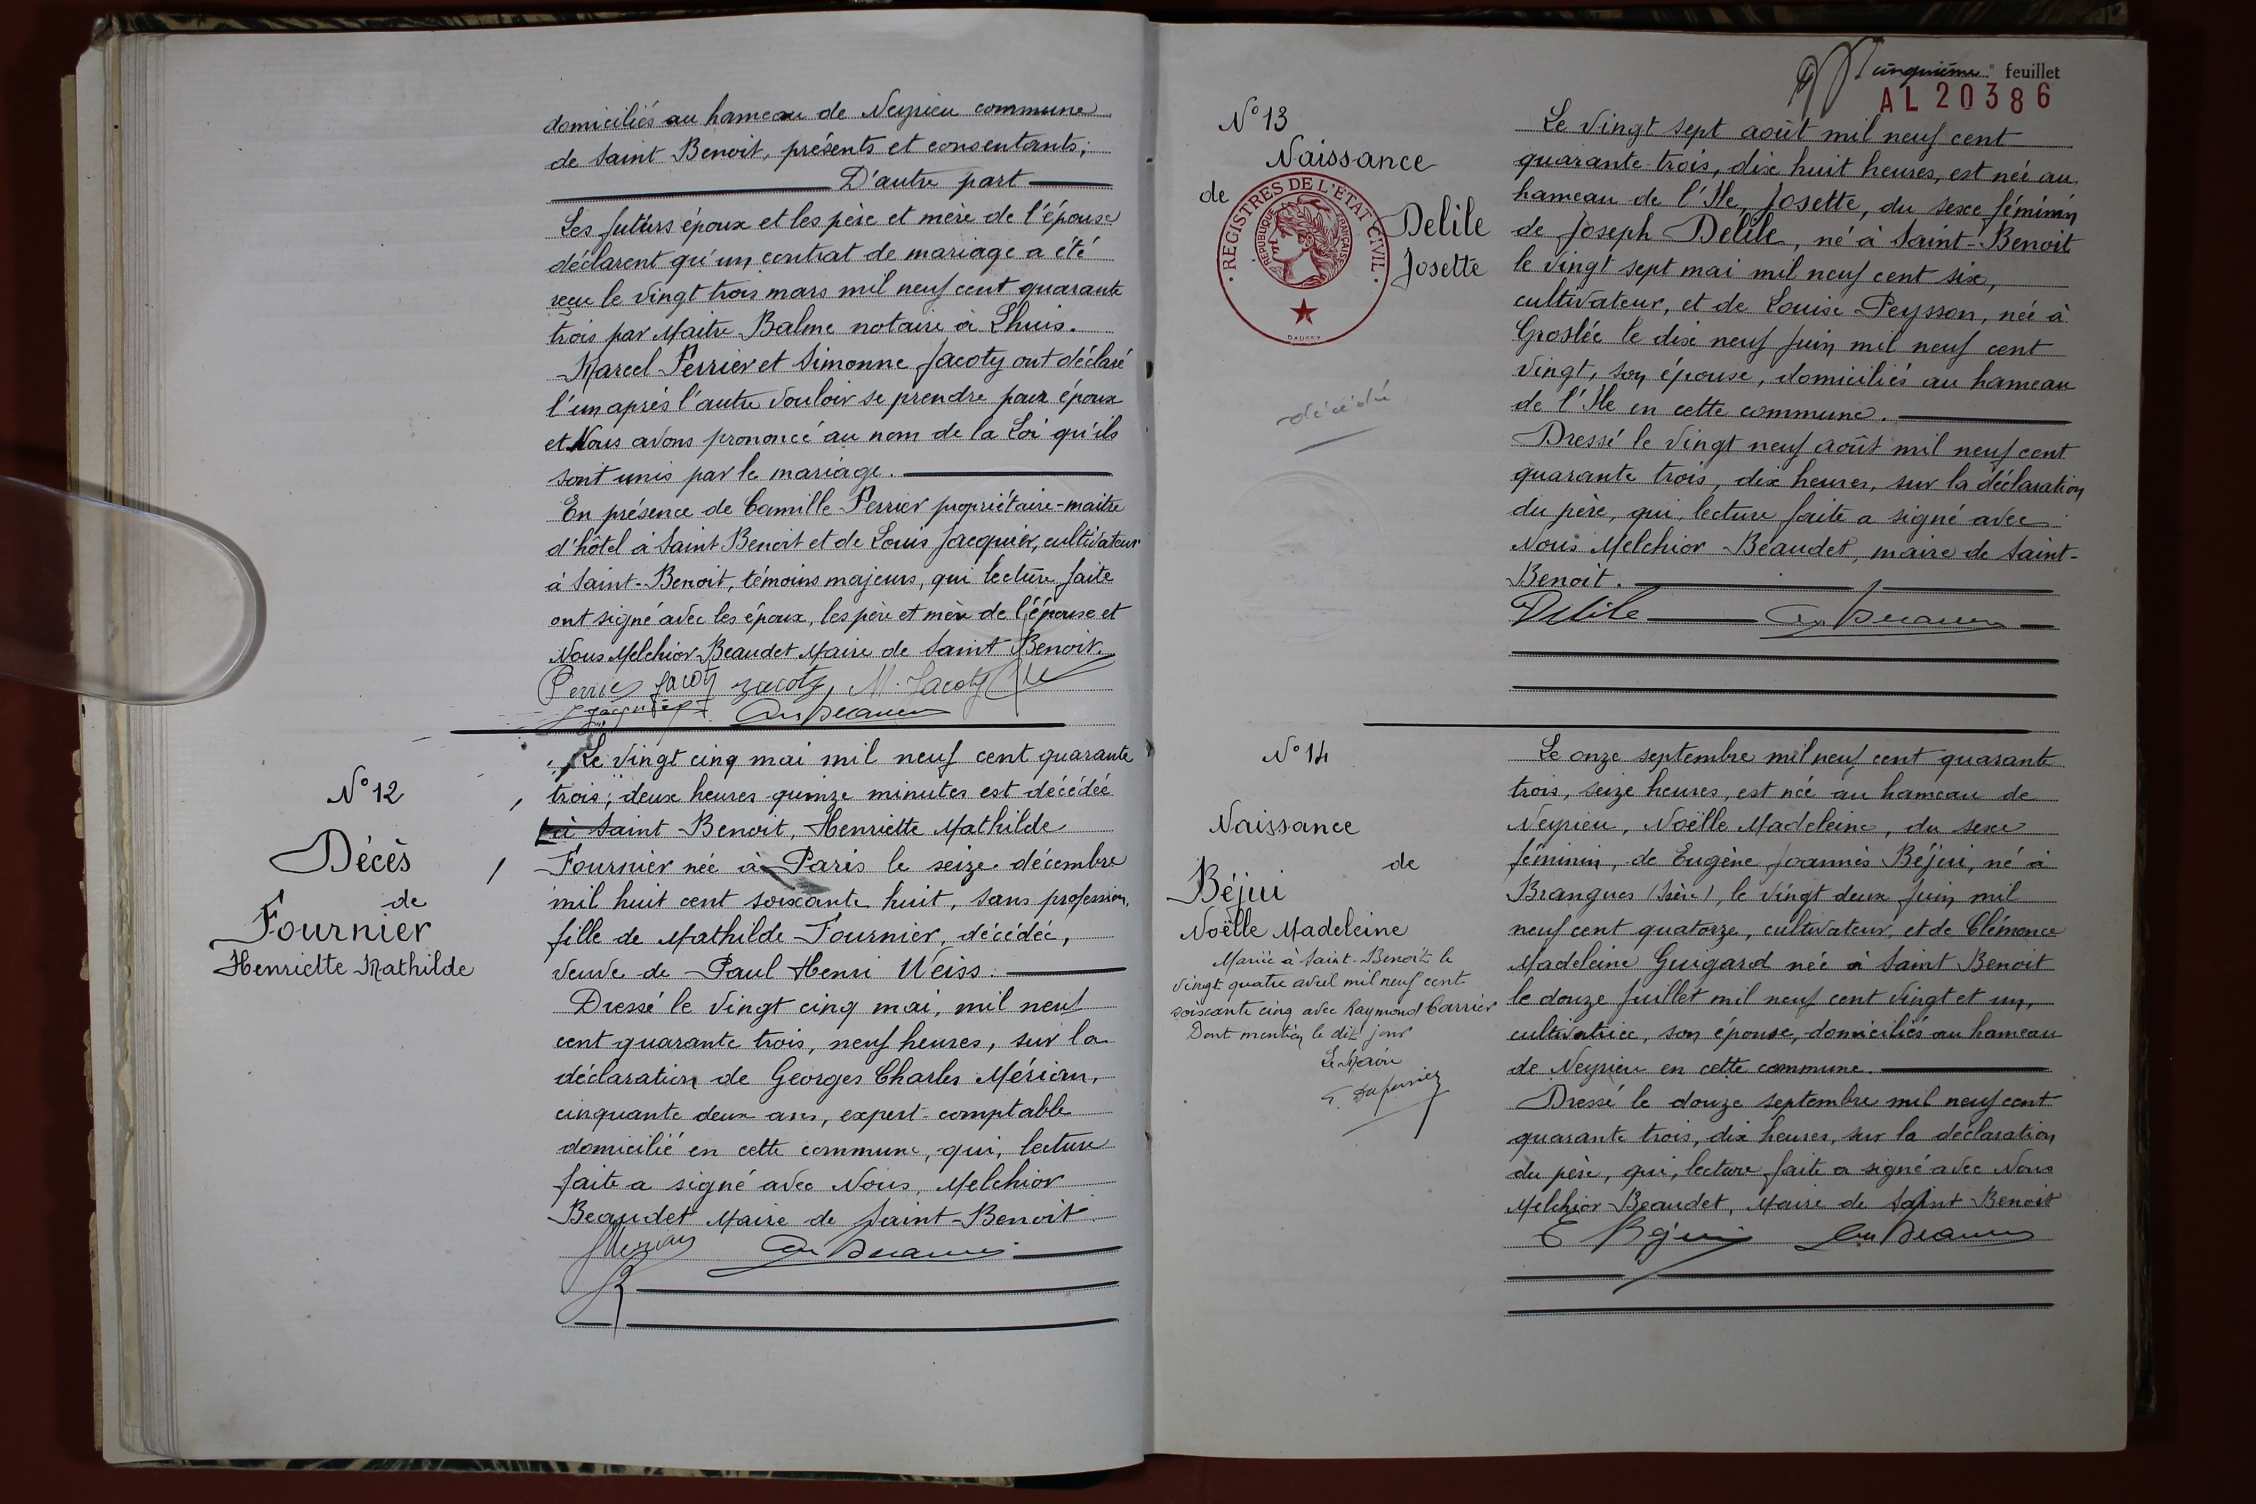 domiciliés au hameau de Neyrieu commune
de Saint Benoit, présents et consentants;
D'autre part
Les futurs époux et les père et mère de l'épouse
déclarent qu'un contrat de mariage a été
reçu le vingt trois mars mil neuf cent quarante
trois par Maitre Balme notaire à Lhuis.
Marcel Perrier et Simonne Jacoty ont déclaré
l'un après l'autre vouloir se prendre pour époux
et Nous avons prononcé au nom de la Loi qu'ils
sont unis par le mariage.
En présence de Camille Perrier propriétaire-maitre
d'hôtel à Saint Benoit et de Louis Jacquier, cultivateur
à Saint-Benoit, témoins majeurs, qui lecture faite
ont signé avec les époux, les père et mère de l'épouse et
Nous Melchior Beaudet Maire de Saint Benoit.
Perrier Jacoty Jacoty, M. Jacoty
N° 12
Décès
de
Fournier
Henriette Mathilde
Le vingt cinq mai mil neuf cent quarante
trois; deux heures quinze minutes est décédée
à Saint Benoit, Henriette Mathilde
Fournier née à Paris le seize décembre
mil huit cent soixante huit, sans profession,
fille de Mathilde Fournier, décédée,
veuve de Paul Henri Weiss.
Dressé le vingt cinq mai, mil neuf
cent quarante trois, neuf heures, sur la
déclaration de Georges Charles Mérian,
cinquante deux ans, expert-comptable
domicilié en cette commune, qui, lecture
faite a signé avec Nous, Melchior
Beaudet Maire de Saint-Benoit
cinquième feuillet
AL 20386
N° 13
Naissance
de
Delile
Josette
REGISTRES DE L'ETAT CIVIL
REPUBLIQUE FRANÇAISE
décédé
Le vingt sept août mil neuf cent
quarante trois, dix huit heures, est née au
hameau de l'Ile, Josette, du sexe féminin
de Joseph Delile, né à Saint-Benoit
le vingt sept mai mil neuf cent six,
cultivateur, et de Louise Peysson, née à
Groslée le dix neuf juin mil neuf cent
vingt, son épouse, domiciliés au hameau
de l'Ile en cette commune.
Dressé le vingt neuf août mil neuf cent
quarante trois, dix heures, sur la déclaration
du père, qui, lecture faite a signé avec
Nous Melchior Beaudet, maire de Saint-
Benoit.
Delile
N° 14
Naissance
de
Béjui
Noëlle Madeleine
Mariée à Saint-Benoit le
vingt quatre avril mil neuf cent
soixante cinq avec Raymond Carrier
Dont mention le dit jour
Le Maire
Le onze septembre mil neuf cent quarante
trois, seize heures, est née au hameau de
Neyrieu, Noëlle Madeleine, du sexe
féminin, de Eugène Joannès Béjui, né à
Brangues (Isère), le vingt deux juin mil
neuf cent quatorze, cultivateur, et de Clémence
Madeleine Guigard née à Saint Benoit
le douze juillet mil neuf cent vingt et un,
cultivatrice, son épouse, domiciliés au hameau
de Neyrieu en cette commune.
Dressé le douze septembre mil neuf cent
quarante trois, dix heures, sur la déclaration
du père, qui, lecture faite a signé avec Nous
Melchior Beaudet, Maire de Saint Benoit
E Béjui